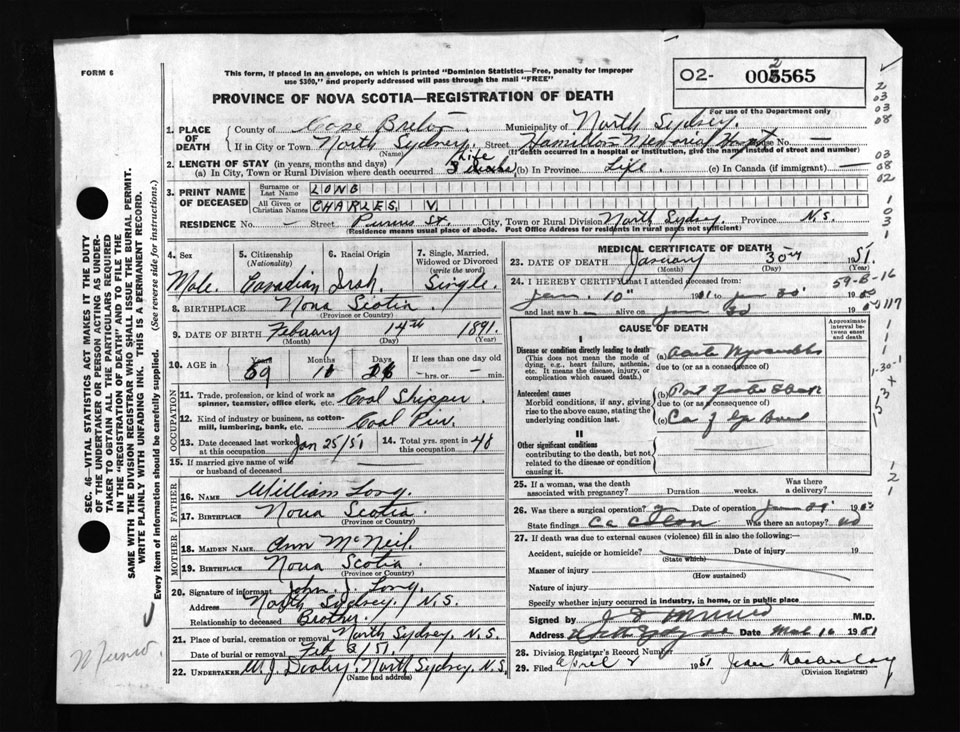 FORM 6
This form, if placed in an envelope, on which is printed "Dominion Statistics—Free, penalty for improper
use $300," and properly addressed will pass through the mail "FREE"
02- 005565
2
For use of the Department only
PROVINCE OF NOVA SCOTIA—REGISTRATION OF DEATH
1. PLACE OF DEATH { County of Cape Breton Municipality of North Sydney.
If in City or Town North Sydney. Street Hamilton Memorial Hospt House No —
(Name) (If death occurred in a hospital or institution, give the name instead of street and number)
2. LENGTH OF STAY (in years, months and days)
(a) In City, Town or Rural Division where death occurred Life (b) In Province Life. (c) In Canada (if immigrant) —
3. PRINT NAME OF DECEASED { Surname or Last Name LONG
All Given or Christian Names CHARLES V
RESIDENCE No. — Street St. City, Town or Rural Division North Sydney. Province N.S.
(Residence means usual place of abode. Post Office Address for residents in rural parts not sufficient)
4. Sex 5. Citizenship (Nationality) 6. Racial Origin 7. Single, Married, Widowed or Divorced (write the word)
Male. Canadian Irish. Single.
8. BIRTHPLACE Nova Scotia.
(Province or Country)
9. DATE OF BIRTH February 14th 1891.
(Month) (Day) (Year)
10. AGE in { Years Months Days If less than one day old
59 11 16 —hrs. or — min.
OCCUPATION
11. Trade, profession, or kind of work as spinner, teamster, office clerk, etc. Coal Shipper.
12. Kind of industry or business, as cotton-mill, lumbering, bank, etc. Coal Pier.
13. Date deceased last worked at this occupation Jan 25/51 14. Total yrs. spent in this occupation 40
15. If married give name of wife or husband of deceased
FATHER
16. NAME William Long.
17. BIRTHPLACE Nova Scotia.
(Province or Country)
MOTHER
18. MAIDEN NAME Ann McNeil.
19. BIRTHPLACE Nova Scotia.
(Province or Country)
20. Signature of informant John J. Long.
Address North Sydney. N.S.
Relationship to deceased Brother.
21. Place of burial, cremation or removal North Sydney. N.S.
Date of burial or removal Feb 2/51.
22. UNDERTAKER W. J. Dooley. North Sydney, N.S.
(Name and address)
MEDICAL CERTIFICATE OF DEATH
23. DATE OF DEATH January 30th 1951.
(Month) (Day) (Year)
24. I HEREBY CERTIFY that I attended deceased from:
Jan. 10" 1951 to Jan 30'
and last saw h— alive on Jan 30
CAUSE OF DEATH
Approximate interval between onset and death
I
Disease or condition directly leading to death
(This does not mean the mode of dying, e.g., heart failure, asthenia, etc. It means the disease, injury, or complication which caused death.)
(a) Acute
due to (or as a consequence of)
Antecedent causes
Morbid conditions, if any, giving rise to the above cause, stating the underlying condition last.
(b) Post
due to (or as a consequence of)
(c) Ca of
II
Other significant conditions
contributing to the death, but not related to the disease or condition causing it.
25. If a woman, was the death associated with pregnancy? Duration weeks. Was there a delivery?
26. Was there a surgical operation? Date of operation
State findings Ca Colon Was there an autopsy? no
27. If death was due to external causes (violence) fill in also the following:—
Accident, suicide or homicide? Date of injury 19
(State which)
Manner of injury
(How sustained)
Nature of injury
Specify whether injury occurred in industry, in home, or in public place
Signed by M.D.
Address North Sydney Date Mch 16 1951
28. Division Registrar's Record Number
29. Filed April 2 1951
(Division Registrar)
SEC. 46. VITAL STATISTICS ACT MAKES IT THE DUTY
OF THE UNDERTAKER OR PERSON ACTING AS UNDER-
TAKER TO OBTAIN ALL THE PARTICULARS REQUIRED
IN THE "REGISTRATION OF DEATH" AND TO FILE THE
SAME WITH THE DIVISION REGISTRAR WHO SHALL ISSUE THE BURIAL PERMIT.
WRITE PLAINLY WITH UNFADING INK. THIS IS A PERMANENT RECORD.
Every item of information should be carefully supplied. (See reverse side for instructions.)
Munro.
2
03
03
08
03
08
02
1
0
3
1